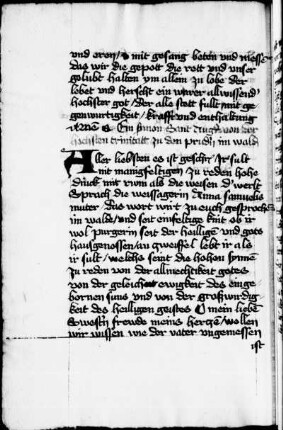 vnd eron / mit gesang beten vnd messe
das wir die gepott die rott vnd vnser
gelubt halten ym allem zu lobe der
lebet vnd herscht ein warer allwissend
hochster got / der alle stett fullt mit ge
genwurtigkeit / krafft vnd enthaltung
Amen Ein sermon
hochsten trinitatt zu den pridn im wald
Aller liebsten es ist geschr Ir sult
nit manigfeltigen zu reden hohe
dinck mit rum als die weisen d' werlt
Sprach die weissagerin Anna samuelis
muter / Das wort wirt zu euch gesprochen
im walde / vnd seit einfeltige knit ob ir
wol purgerin seit der heiligen vnd gots
hausgenossen / an zweiffel lebt ir als
ir sult / welchs seint die hohen synne
zu reden von der allmechtikeit gotes
von der geleichen ewigkeit des einge
bornen suns vnd von der großwirdig
keit des heiligen geistes O mein liebe
Swestn freude meins hertzen / wellen
wir wissen wie der vater vngemessen
ist